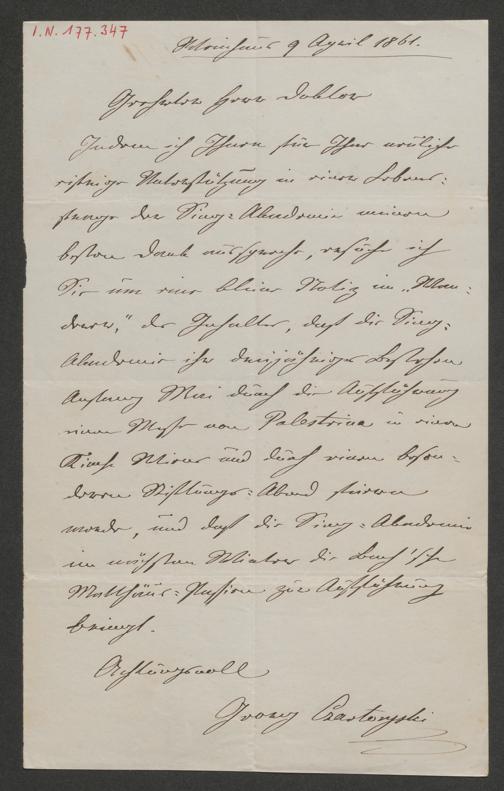 I.N. 177.347
Weinhaus 9 April 1861.
Geehrter Herr Doktor
Indem ich Ihnen für Ihre neuliche
eifrige Unterstützung in einer Lebens-
frage der Sing-Akademie meinen
besten Dank ausspreche, ersuche ich
Sie um eine kleine Notiz im „Wan-
derer," des Inhaltes, daß die Sing-
Akademie ihr dreijähriges Bestehen
Anfang Mai durch die Aufführung
einer Messe von Palestrina in einer
Kirche Wiens und durch einen beson-
deren Stiftungs-Abend feiern
werde, und daß die Sing-Akademie
im nächsten Winter die Bach'sche
Matthäus-Passion zur Aufführung
bringt.
Achtungsvoll
Czartoryski